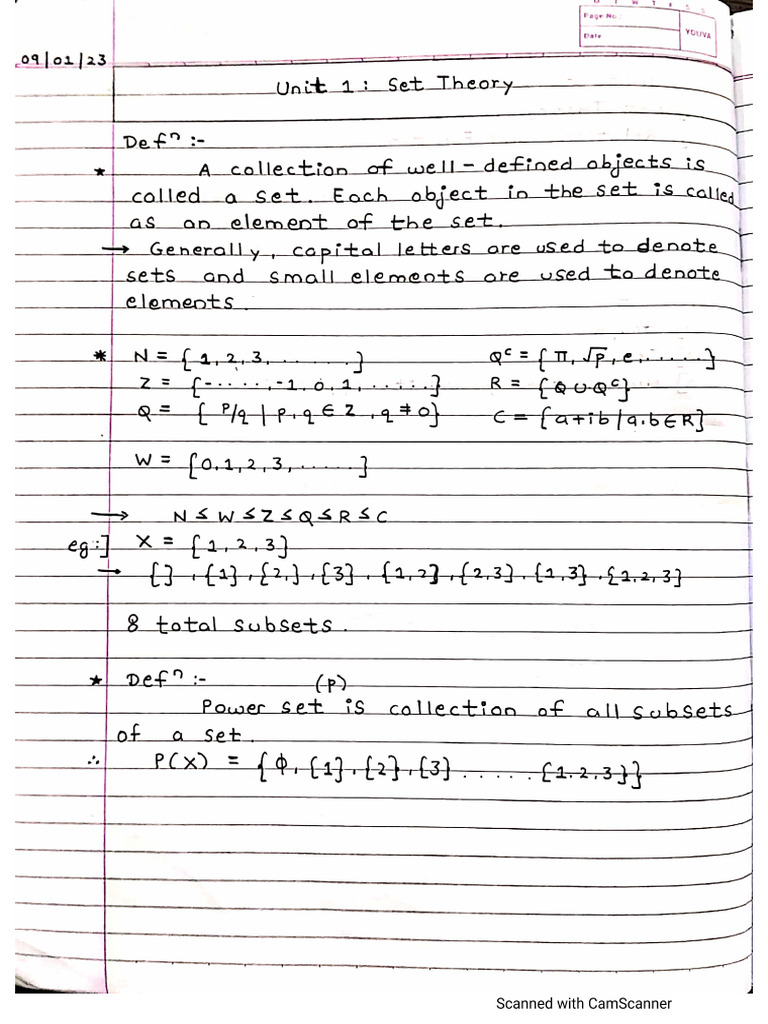 M T W T F S S
Page No.:
Date
YOUVA
09/01/23
Unit 1: Set Theory
Defⁿ :-
* A collection of well-defined objects is
called a set. Each object in the set is called
as an element of the set.
→ Generally, capital letters are used to denote
sets and small elements are used to denote
elements.
* N = {1, 2, 3, .......} Qᶜ = {π, √p, e, ......}
Z = {-....., -1, 0, 1, ......} R = {Q ∪ Qᶜ}
Q = {p/q | p, q ∈ Z, q ≠ 0} C = {a+ib / a.b ∈ R}
W = {0, 1, 2, 3, ......}
→ N ≤ W ≤ Z ≤ Q ≤ R ≤ C
eg:] X = {1, 2, 3}
→ {}, {1}, {2,}, {3}, {1, 2}, {2, 3}, {1, 3}, {1, 2, 3}
8 total subsets.
* Defⁿ :- (P)
Power set is collection of all subsets
of a set.
∴ P(X) = {ϕ, {1}, {2}, {3} ...... {1, 2, 3}}
Scanned with CamScanner